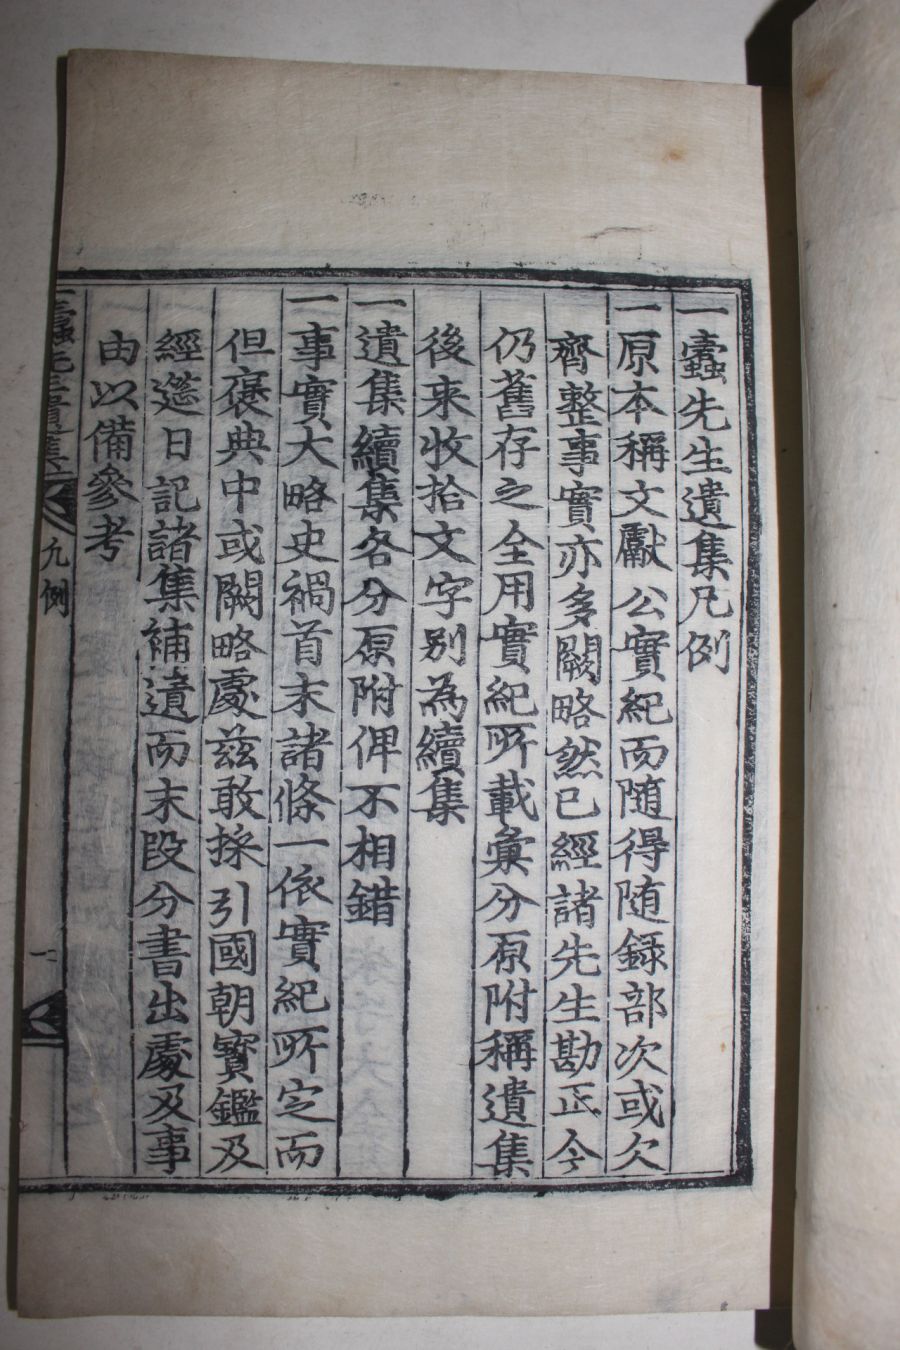 一蠹先生遺集凡例
一原本稱文獻公實紀而隨得随録部次或欠
齊整事實亦多闕略然已經諸先生勘正今
仍舊存之全用實紀所載彙分原附稱遺集
後来收拾文字别為續集
一遺集續集各分原附俾不相錯
一事實大略史禍首末諸條一依實紀所定而
但褒典中或闕略處玆敢採引國朝寶鑑及
經筵日記諸集補遺而末段分書出處及事
由以備參考
一蠹先生遺集 凡例 一